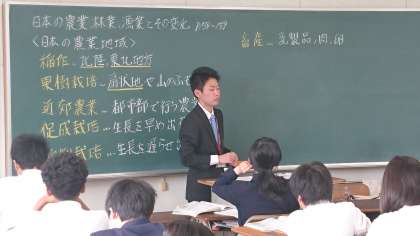 日本の農業、林業、漁業とその変化 P158~159
<日本の農業地域>
稲作… 北陸・東北地方
果樹栽培… 扇状地や山のふ
近郊農業… 都市部で行う農
促成栽培… 生長を早め出
栽培… 生長を遅らせ
畜産… 乳製品、肉、卵